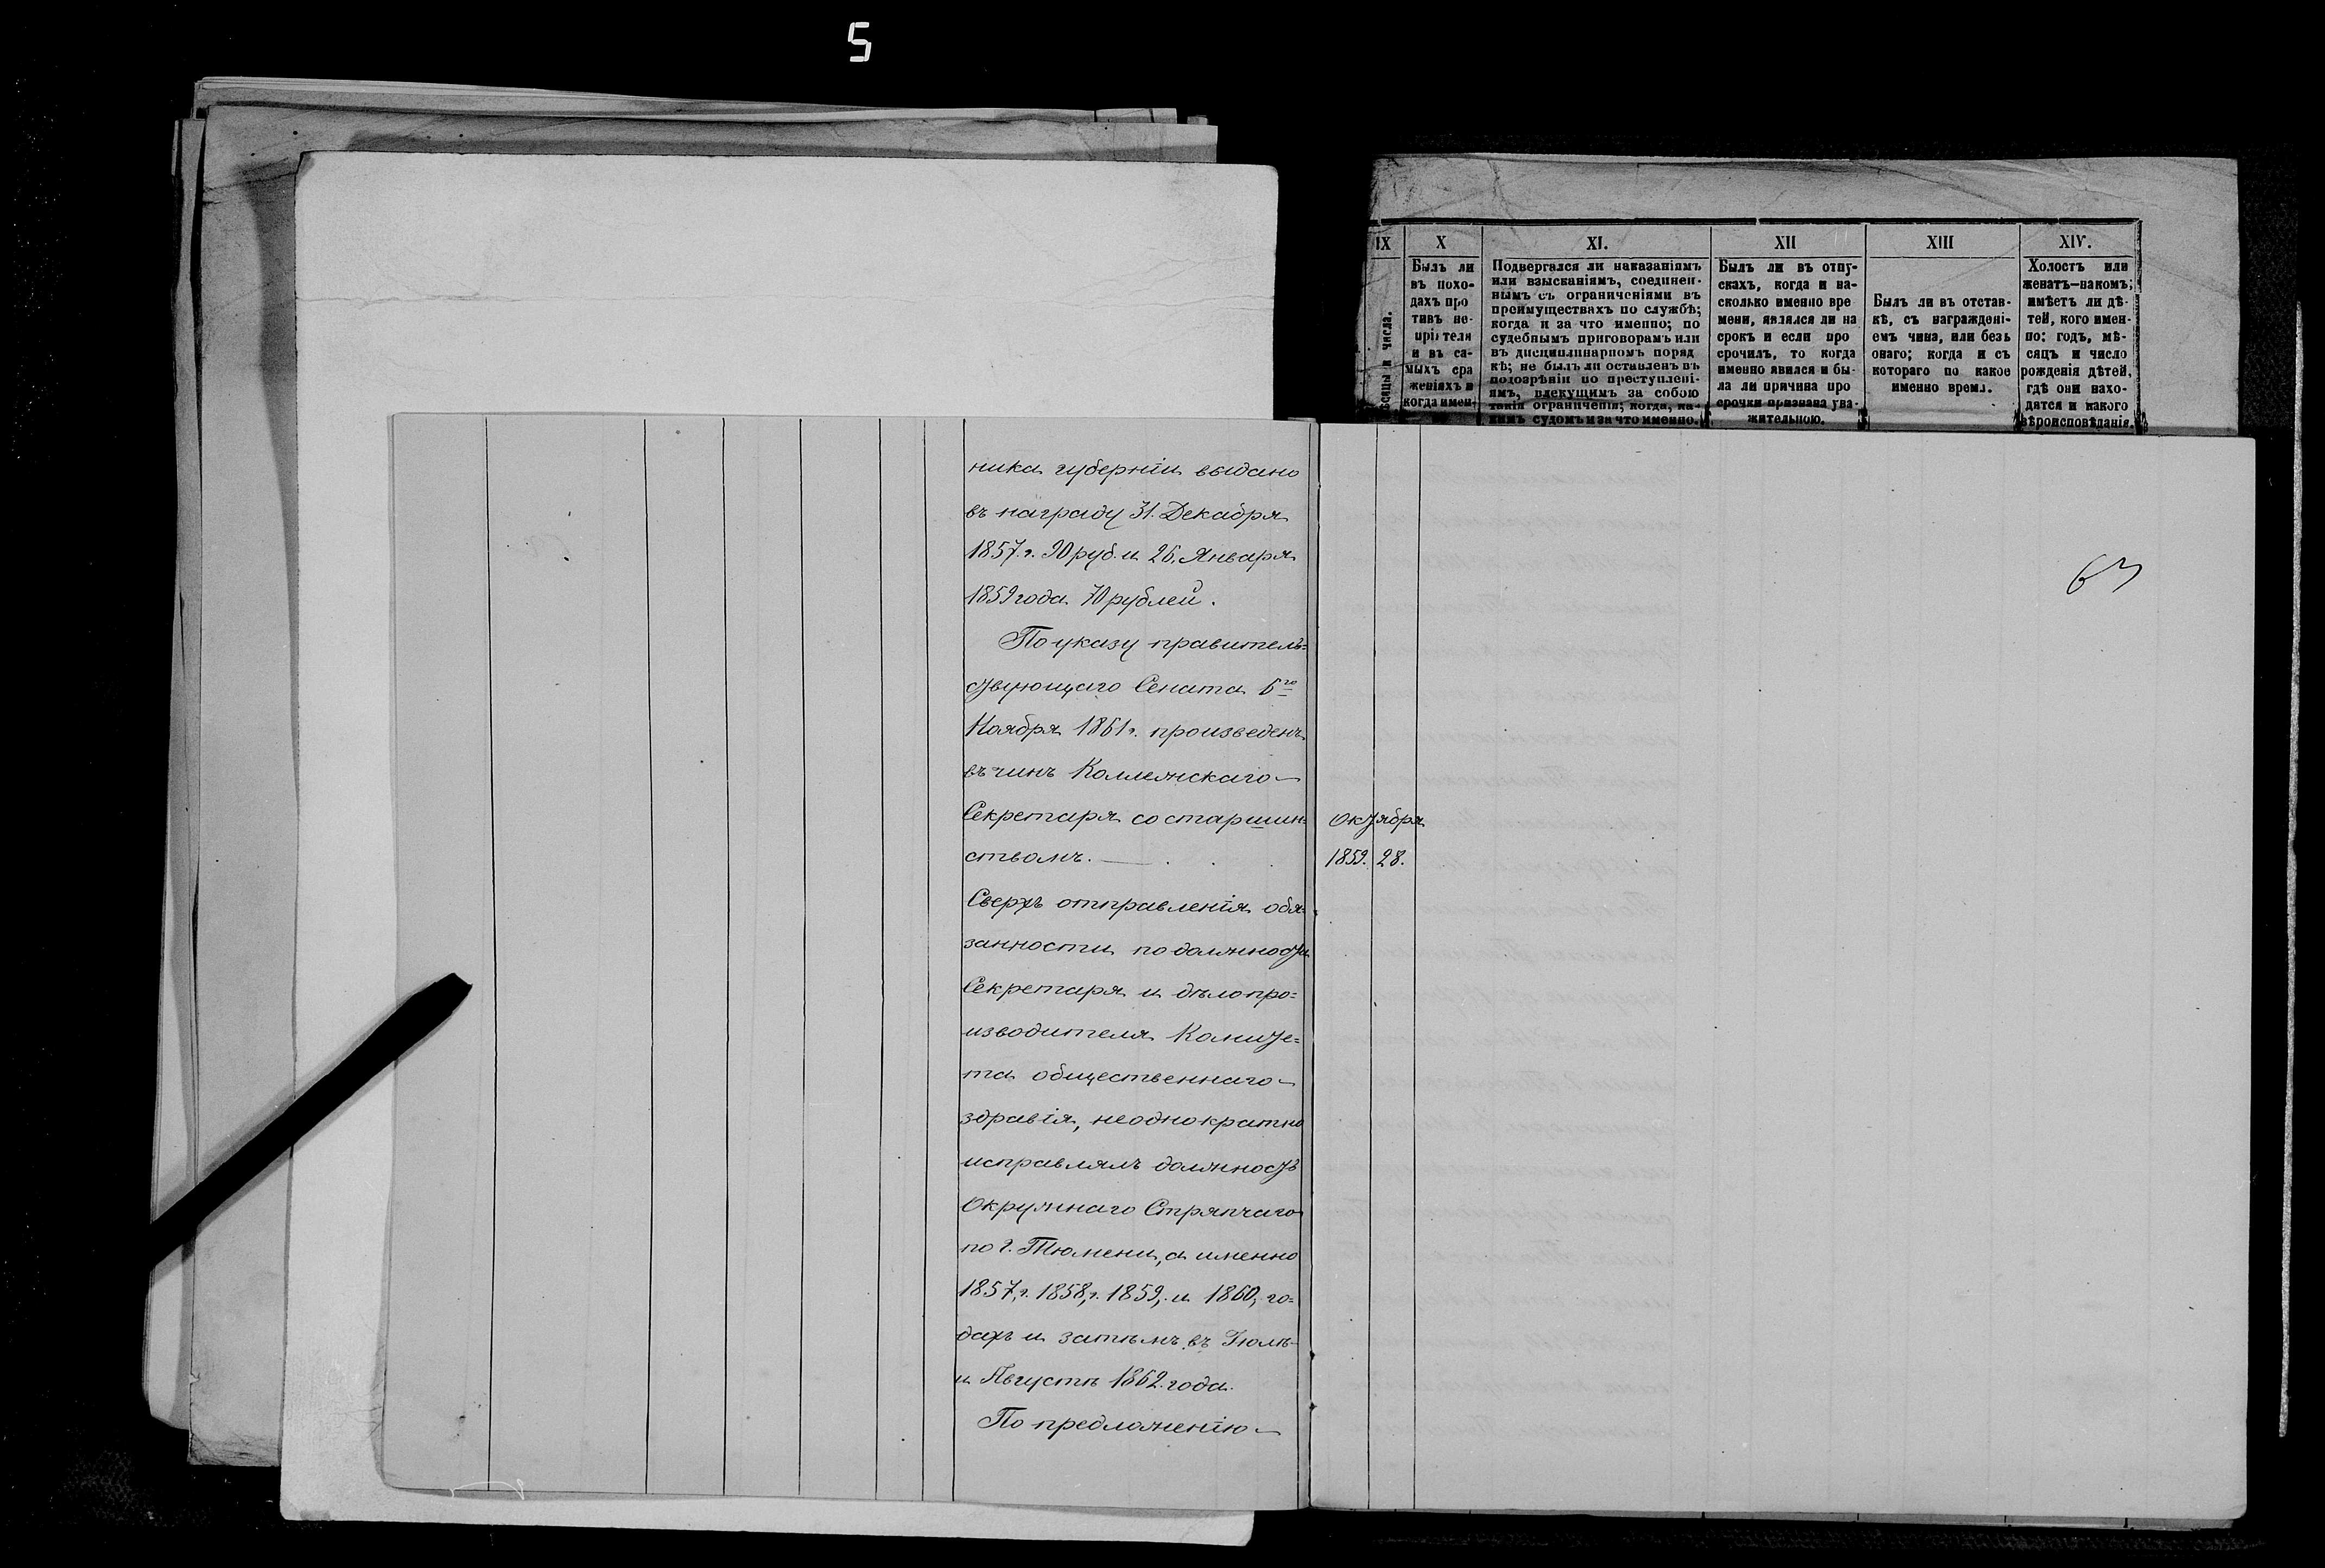 5
IX
X
XI.
XII
XIII
XIV.
сяцы и числа.
Былъ ли
въ похо-
дахъ про
тивъ не-
пріятеля
и въ са-
мыхъ сра
женіяхъ и
когда имен-
Подвергался ли наказаніямъ
или взысканіямъ, соединен-
нымъ съ ограниченіями въ
преимуществахъ по службѣ;
когда и за что именно; по
судебнымъ приговорамъ или
въ дисциплинарномъ поряд
кѣ; не былъ ли оставленъ въ
подозрѣніи по преступлені-
ямъ, влекущимъ за собою
такія ограниченія; когда, ка-
кимъ судомъ и за что именно.
Былъ ли въ отпу-
скахъ, когда и на-
сколько именно вре
мени, являлся ли на
срокъ и если про
срочилъ, то когда
именно явился и бы-
ла ли причина про
срочки признана ува-
жительною.
Былъ ли въ отстав-
кѣ, съ награжденi-
емъ чина, или безъ
онаго; когда и съ
котораго по какое
именно время.
Холостъ или
женатъ—на комъ;
имѣетъ ли дѣ-
тей, кого имен-
но: годъ, мѣ-
сяцъ и число
рожденія дѣтей,
гдѣ они нахо-
дятся и какого
вѣроисповѣданія.
ника губерніи выдано
въ награду 31. Декабря
1857. г. 90 руб. и 26. Января
1859 года 70 рублей.
По указу правитель=
ствующаго Сената 6го
Ноября 1861 г. произведенъ
въ чинъ Коллежскаго —
Секретаря со старшин=
ствомъ. —
Сверхъ отправленія обя=
занности по должности
Секретаря и дѣлопро=
изводителя Комите=
та общественнаго —
здравія, неоднократно
исправлялъ должность
Окружнаго Стряпчаго
по г. Тюмени, а именно
1857, г. 1858, г. 1859, и 1860, го=
дахъ и затѣмъ въ Іюлѣ
и Августѣ 1862. года.
По предложенію —
Октября
1859. 28.
63